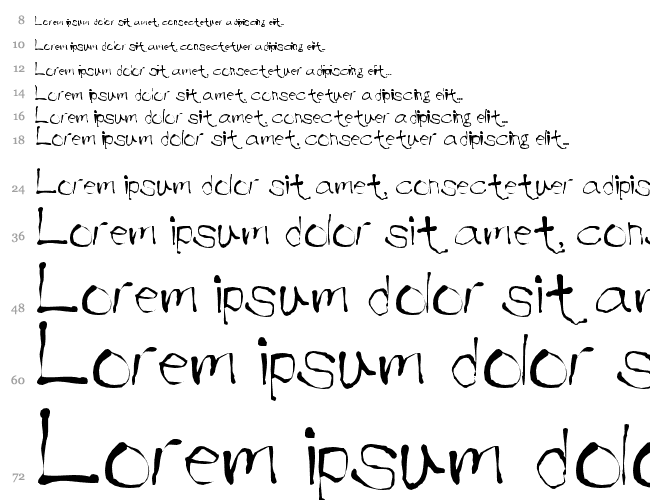 8 Lorem ipsum dolor sit amet, consectetuer adipiscing elit...
10 Lorem ipsum dolor sit amet, consectetuer adipiscing elit...
12 Lorem ipsum dolor sit amet, consectetuer adipiscing elit...
14 Lorem ipsum dolor sit amet, consectetuer adipiscing elit...
16 Lorem ipsum dolor sit amet, consectetuer adipiscing elit...
18 Lorem ipsum dolor sit amet, consectetuer adipiscing elit...
24 Lorem ipsum dolor sit amet, consectetuer adipis
36 Lorem ipsum dolor sit amet, cons
48 Lorem ipsum dolor sit am
60 Lorem ipsum dolor s
72 Lorem ipsum dolo